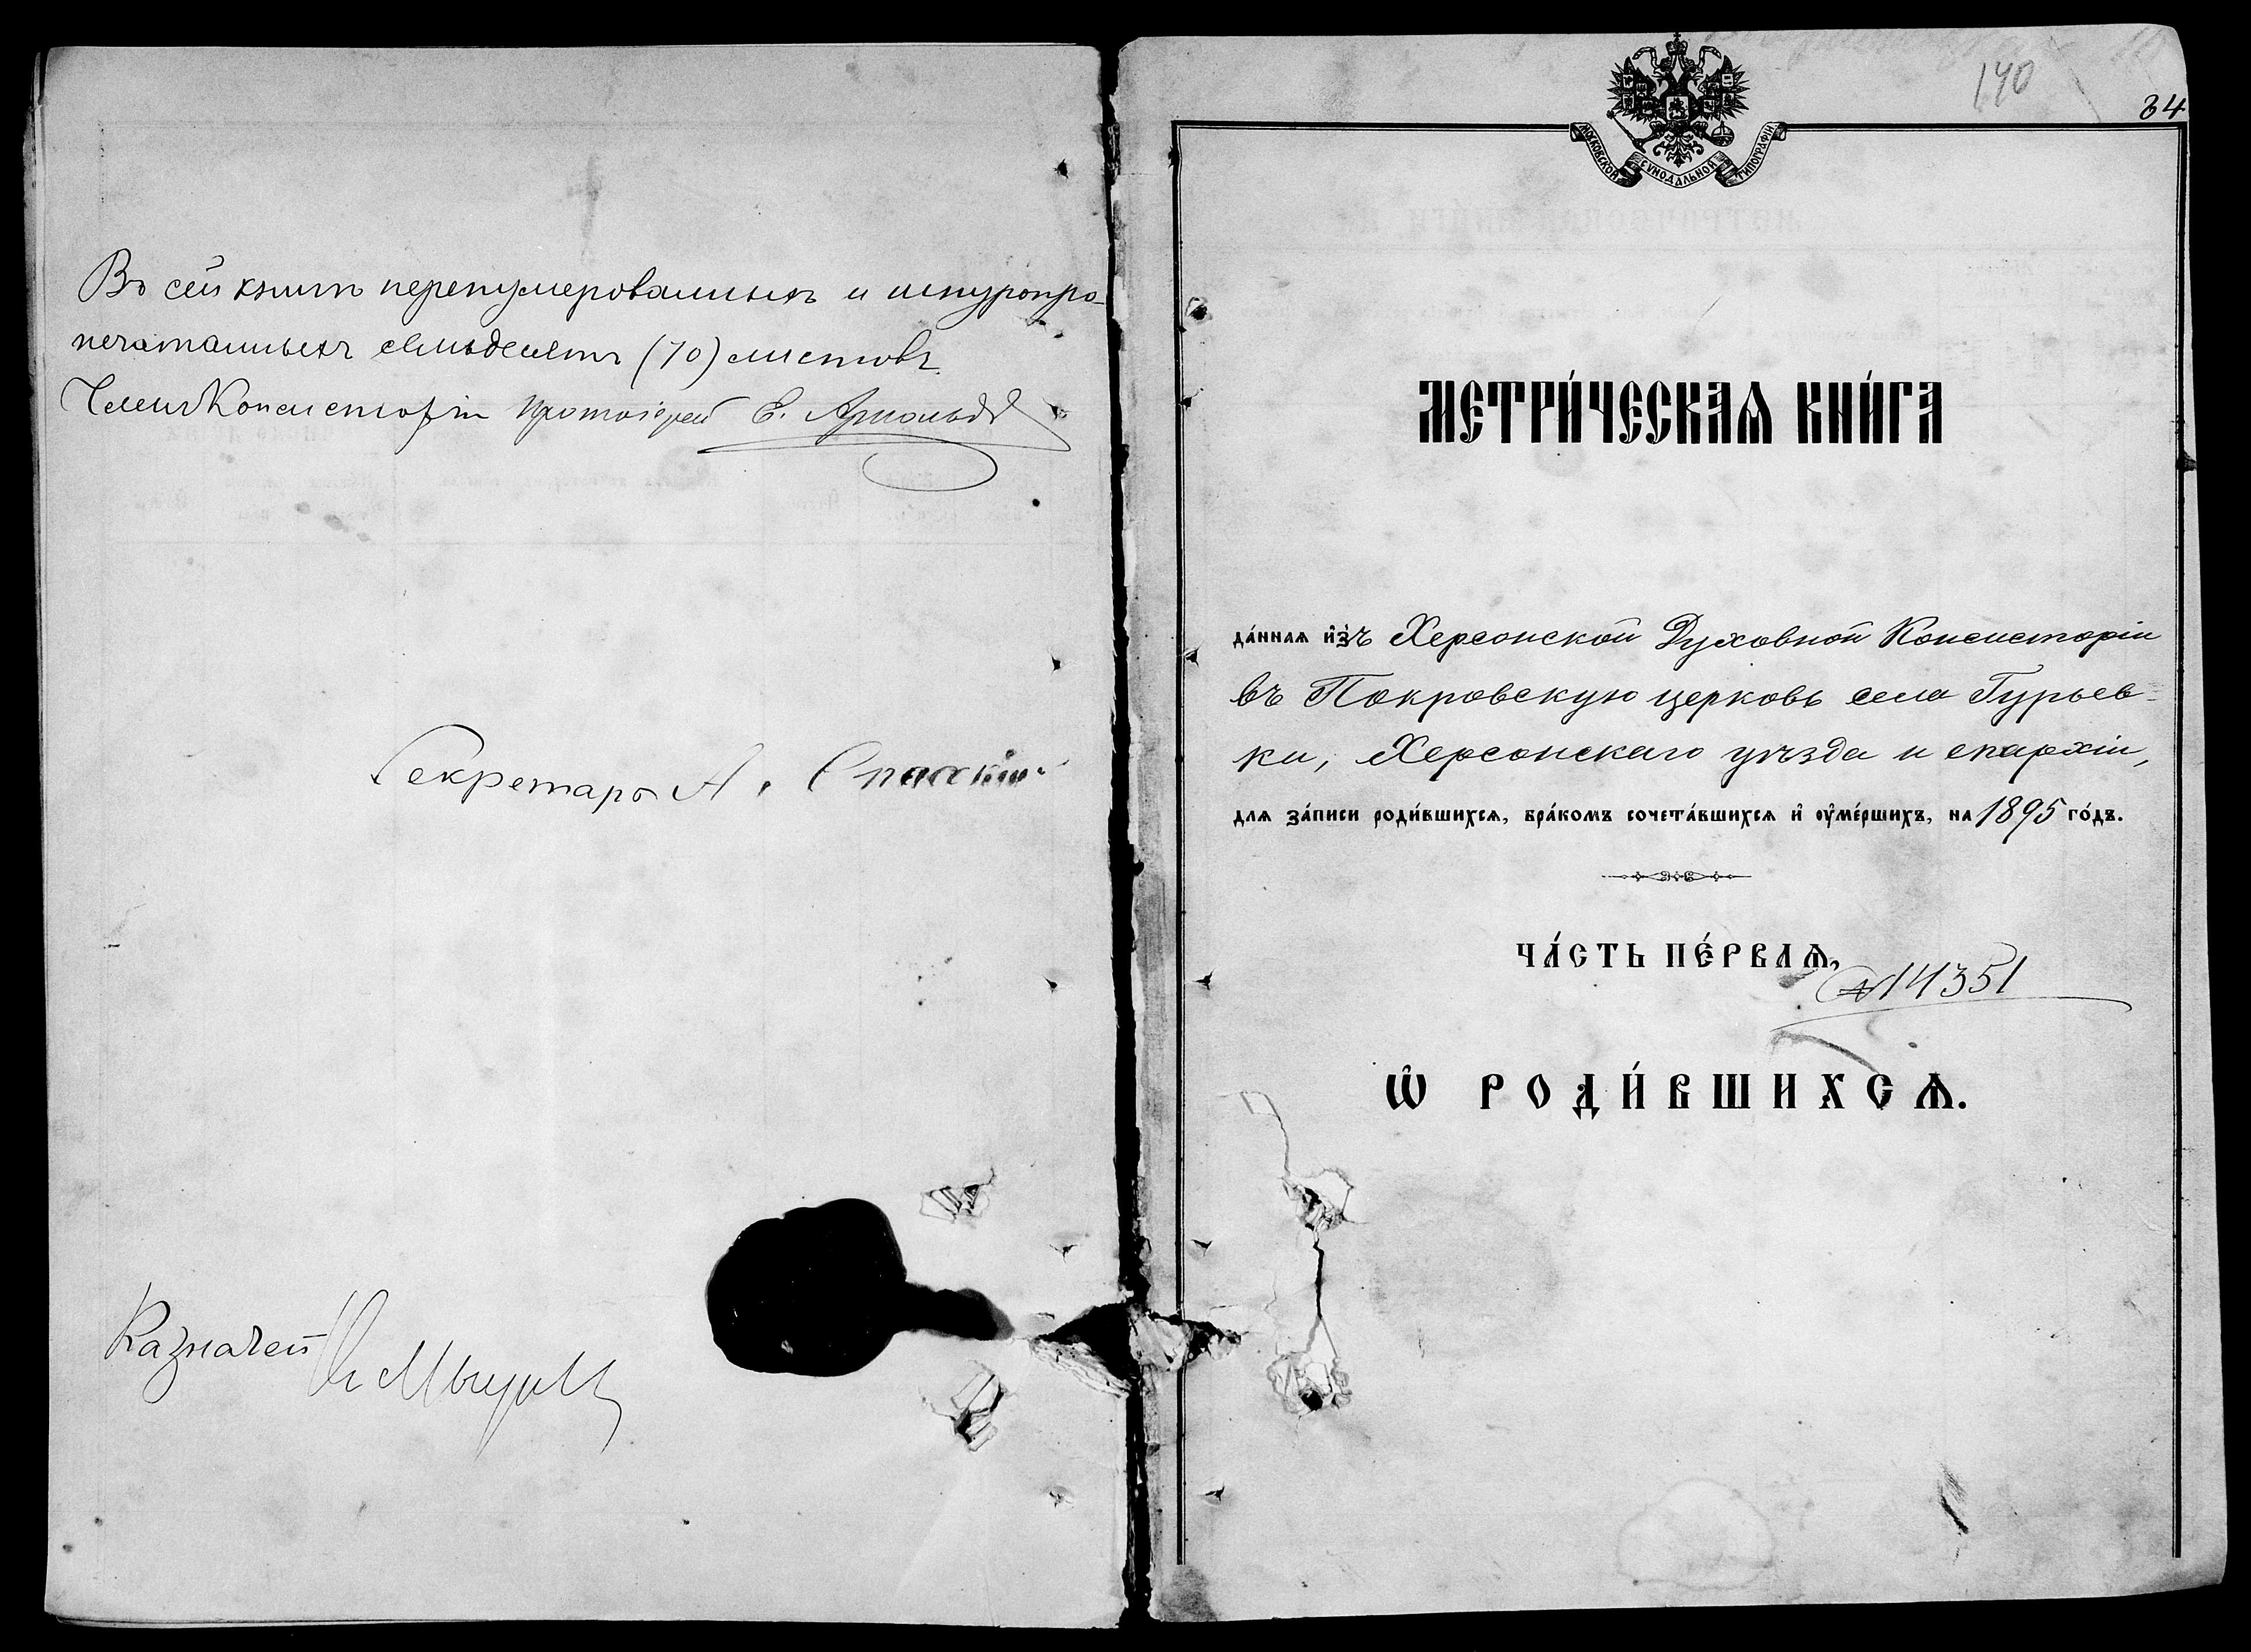 Въ сей книгѣ перенумерованныхъ и шнуропро-
печатанныхъ семьдесятъ (70) листовъ.
Членъ Консисторіи Протоіерей С. Арнольдъ
Секретарь А. Спасскій
Казначей
140
84
МОСКОВСКОЙ СѴНОДАЛЬНОЙ ТИПОГРАФІИ
МЕТРИ́ЧЕСКАѦ КНИ́ГА
да́ннаѧ и҆зъ Херсонской Духовной Консисторіи
въ Покровскую церковь села Гурьев-
ки, Херсонскаго уѣзда и епархіи,
длѧ за́писи роди́вшихсѧ, бра́комъ сочета́вшихсѧ и҆ оу҆ме́ршихъ, на 1895 го́дъ.
ЧА́СТЬ ПЕ́РВАѦ,
№ 14351
Ѡ҆ РОДИ́ВШИХСѦ.